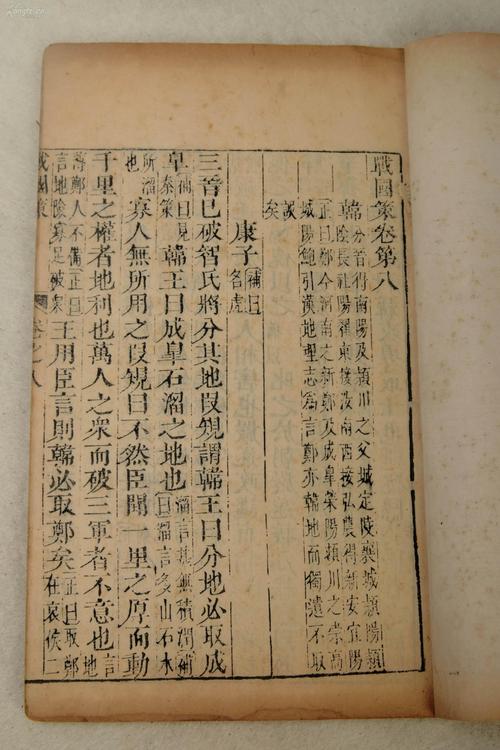 戰國策卷第八
韓
分晉得南陽及潁川之父城定陵襄城潁陽潁
陰長社陽翟東接汝南西接弘農得新安宜陽
正曰鄭今河南之新鄭及成皐滎陽潁川之崇高
城陽鮑引漢地理志爲言鄭亦韓地而獨遺不取
誤
矣
康子
補曰
名虎
三晉已破智氏將分其地叚規謂韓王曰分地必取成
皐
補曰見
秦策
韓王曰成皐石溜之地也
溜言其無積潤補
曰溜言多山石水
所溜
也
寡人無所用之叚規曰不然臣聞一里之厚而動
千里之權者地利也萬人之衆而破三軍者不意也
言
地
利鄭人不備正曰
言地險寡足破衆
王用臣言則韓必取鄭矣
正曰取鄭
在哀侯二
戰國策
卷之八